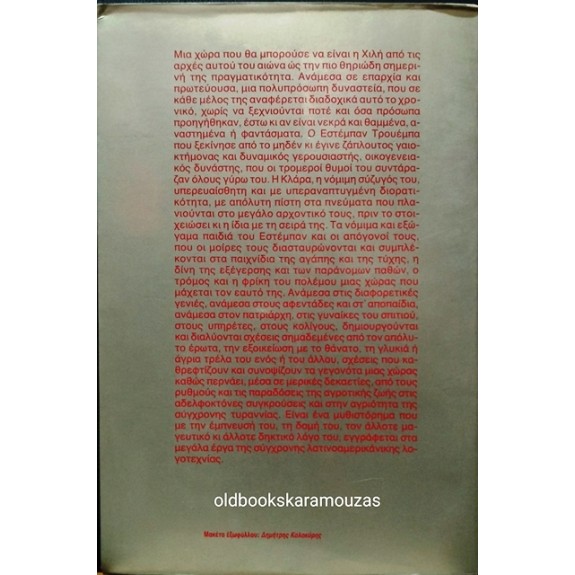 Μια χώρα που θα μπορούσε να είναι η Χιλή από τις
αρχές αυτού του αιώνα ώς την πιο θηριώδη σημερι-
νή της πραγματικότητα. Ανάμεσα σε επαρχία και
πρωτεύουσα, μια πολυπρόσωπη δυναστεία, που σε
κάθε μέλος της αναφέρεται διαδοχικά αυτό το χρο-
νικό, χωρίς να ξεχνιούνται ποτέ και όσα πρόσωπα
προηγήθηκαν, έστω κι αν είναι νεκρά και θαμμένα, α-
ναστημένα ή φαντάσματα. Ο Εστέμπαν Τρουέμπα
που ξεκίνησε από το μηδέν κι έγινε ζάπλουτος γαιο-
κτήμονας και δυναμικός γερουσιαστής, οικογενεια-
κός δυνάστης, που οι τρομεροί θυμοί του συντάρα-
ζαν όλους γύρω του. Η Κλάρα, η νόμιμη σύζυγός του,
υπερευαίσθητη και με υπεραναπτυγμένη διορατι-
κότητα, με απόλυτη πίστη στα πνεύματα που πλα-
νιούνται στο μεγάλο αρχοντικό τους, πριν το στοι-
χειώσει κι η ίδια με τη σειρά της. Τα νόμιμα και εξώ-
γαμα παιδιά του Εστέμπαν και οι απόγονοί τους,
που οι μοίρες τους διασταυρώνονται και συμπλέ-
κονται στα παιχνίδια της αγάπης και της τύχης, η
δίνη της εξέγερσης και των παράνομων παθών, ο
τρόμος και η φρίκη του πολέμου μιας χώρας που
μάχεται τον εαυτό της. Ανάμεσα στις διαφορετικές
γενιές, ανάμεσα στους αφεντάδες και στ' αποπαίδια,
ανάμεσα στον πατριάρχη, στις γυναίκες του σπιτιού,
στους υπηρέτες, στους κολίγους, δημιουργούνται
και διαλύονται σχέσεις σημαδεμένες από τον απόλυ-
το έρωτα, την εξοικείωση με το θάνατο, τη γλυκιά ή
άγρια τρέλα του ενός ή του άλλου, σχέσεις που κα-
θρεφτίζουν και συνοψίζουν τα γεγονότα μιας χώρας
καθώς περνάει, μέσα σε μερικές δεκαετίες, από τους
ρυθμούς και τις παραδόσεις της αγροτικής ζωής στις
αδελφοκτόνες συγκρούσεις και στην αγριότητα της
σύγχρονης τυραννίας. Είναι ένα μυθιστόρημα που
με την έμπνευσή του, τη δομή του, τον άλλοτε μα-
γευτικό κι άλλοτε δηκτικό λόγο του, εγγράφεται στα
μεγάλα έργα της σύγχρονης λατινοαμερικάνικης λο-
γοτεχνίας.
oldbookskaramouzas
Μακέτα εξωφύλλου: Δημήτρης Καλοκύρης